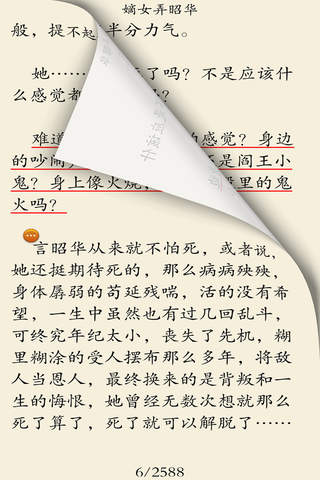 嫡女弄昭华
般，提不起半分力气。
她……死了吗？不是应该什
么感觉都？
难道的感觉？身边
的吵闹是阎王小
鬼？身上像火烧殿里的鬼
火吗？
言昭华从来就不怕死，或者说，
她还挺期待死的，那么病病殃殃，
身体孱弱的苟延残喘，活的没有希
望，一生中虽然也有过几回乱斗，
可终究年纪太小，丧失了先机，糊
里糊涂的受人摆布那么多年，将敌
人当恩人，最终换来的是背叛和一
生的悔恨，她曾经无数次想就那么
死了算了，死了就可以解脱了……
6/2588